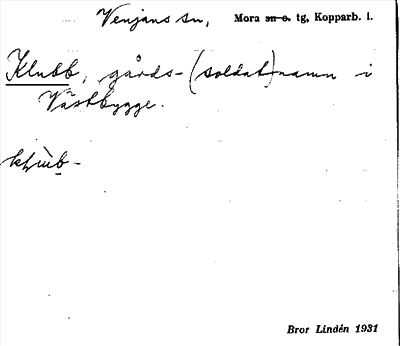 Venjans sn, Mora sn o. tg, Kopparb. l.
Klubb, gårds- (soldat)namn i
Västbygge.
Bror Lindén 1931